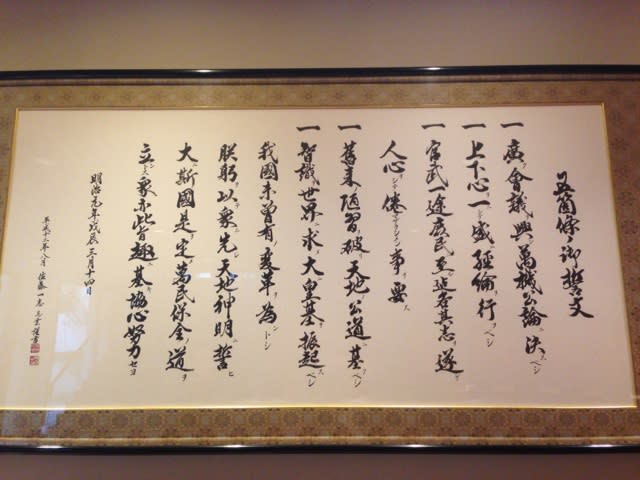 五箇條ノ御誓文
一 廣ク會議ヲ興シ萬機公論ニ決スベシ
一 上下心ヲ一ニシテ盛ニ經倫ヲ行フベシ
一 官武一途庶民ニ至ル迄各其志ヲ遂ゲ
人心ヲシテ倦マザラシメン事ヲ要ス
一 舊来ノ陋習ヲ破リ天地ノ公道ニ基クベシ
一 智識ヲ世界ニ求メ大ニ皇基ヲ振起スベシ
我國未曾有ノ変革ヲ為ントシ
朕躬ヲ以テ衆ニ先シ天地神明ニ誓ヒ
大ニ斯國是ヲ定メ萬民保全ノ道ヲ
立ントス衆亦此旨趣ニ基キ協心努力セヨ
明治元年戊辰三月十四日
平成十三年八月 佐藤一志